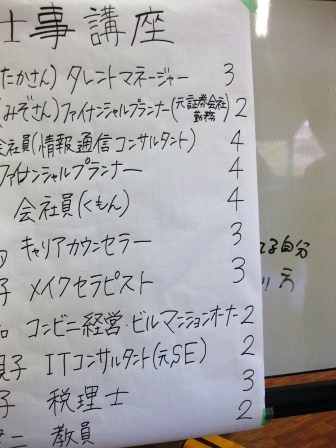 仕事講座
たかさん) タレントマネージャー 3
(みぞさん) ファイナンシャルプランナー(元証券会社勤務) 2
会社員(情報通信コンサルタント) 4
ファイナンシャルプランナー 4
会社員(くもん) 4
キャリアカウンセラー 3
子 メイクセラピスト 3
コンビニ経営・ビルマンションオーナー 2
子 ITコンサルタント(元SE) 2
子 税理士 3
二 教員 2
自分